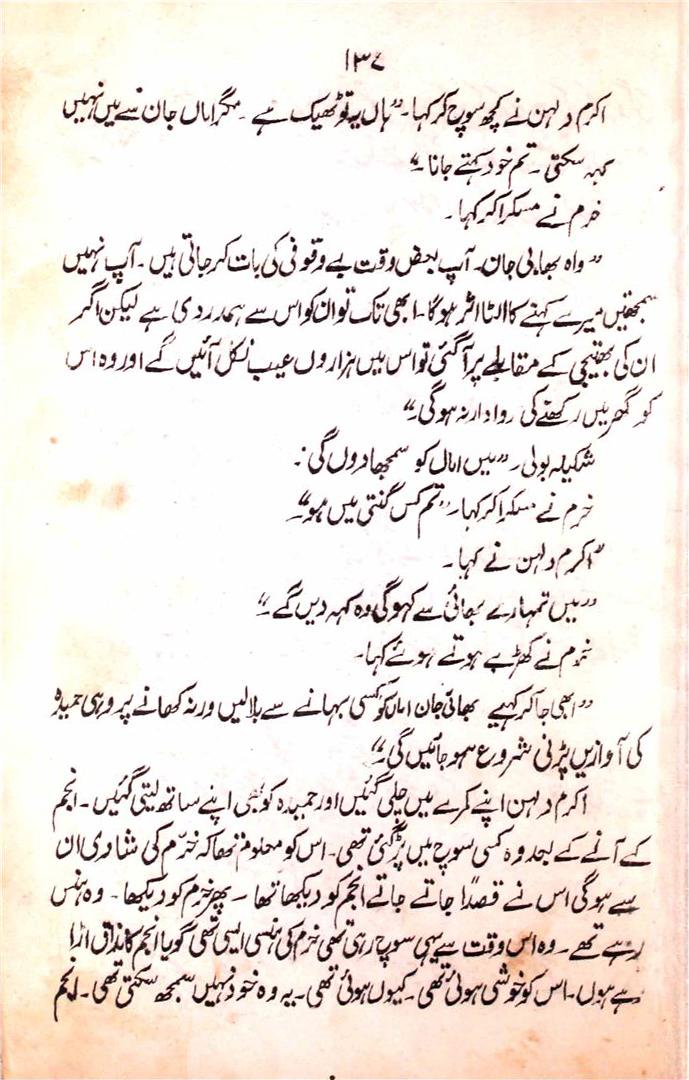 ۱۳۷
اکرم دلہن نے کچھ سوچ کر کہا۔ "ہاں یہ تو ٹھیک ہے۔ مگر اماں جان سے میں نہیں
کہہ سکتی۔ تم خود کہتے جانا۔"
خرم نے مسکرا کر کہا۔
"واہ بھابی جان۔ آپ بعض وقت بے وقوفی کی بات کر جاتی ہیں۔ آپ نہیں
سمجھتیں میرے کہنے کا الٹا اثر ہوگا۔ ابھی تک تو ان کو اس سے ہمدردی ہے لیکن اگر
ان کی بھتیجی کے مقابلے پر آ گئی تو اس میں ہزاروں عیب نکل آئیں گے اور وہ اس
کو گھر میں رکھنے کی روادار نہ ہوگی۔"
شکیلہ بولی۔ "میں اماں کو سمجھا دوں گی۔
خرم نے مسکرا کر کہا۔ "تم کس گنتی میں ہو۔"
اکرم دلہن نے کہا۔
"میں تمہارے بھائی سے کہوگی وہ کہہ دیں گے۔"
خرم نے کھڑے ہوتے ہوئے کہا۔
"ابھی جا کر کہیے بھائی جان اماں کو کسی بہانے سے بلا لیں ورنہ کھانے پر وہی حمیدہ
کی آوازیں پڑنی شروع ہو جائیں گی۔"
اکرم دلہن اپنے کمرے میں چلی گئیں اور حمیدہ کو بھی اپنے ساتھ لیتی گئیں۔ انجم
کے آنے کے بعد وہ کسی سوچ میں پڑ گئی تھی۔ اس کو معلوم تھا کہ خرّم کی شادی ان
سے ہوگی اس نے قصداً جاتے جاتے انجم کو دیکھا تھا۔ پھر خرم کو دیکھا۔ وہ ہنس
رہے تھے۔ وہ اس وقت سے یہی سوچ رہی تھی خرم کی ہنسی ایسی تھی گویا انجم کا مذاق اڑا
رہے ہوں۔ اس کو خوشی ہوئی تھی۔ کیوں ہوئی تھی۔ یہ وہ خود نہیں سمجھ سکتی تھی۔ انجم